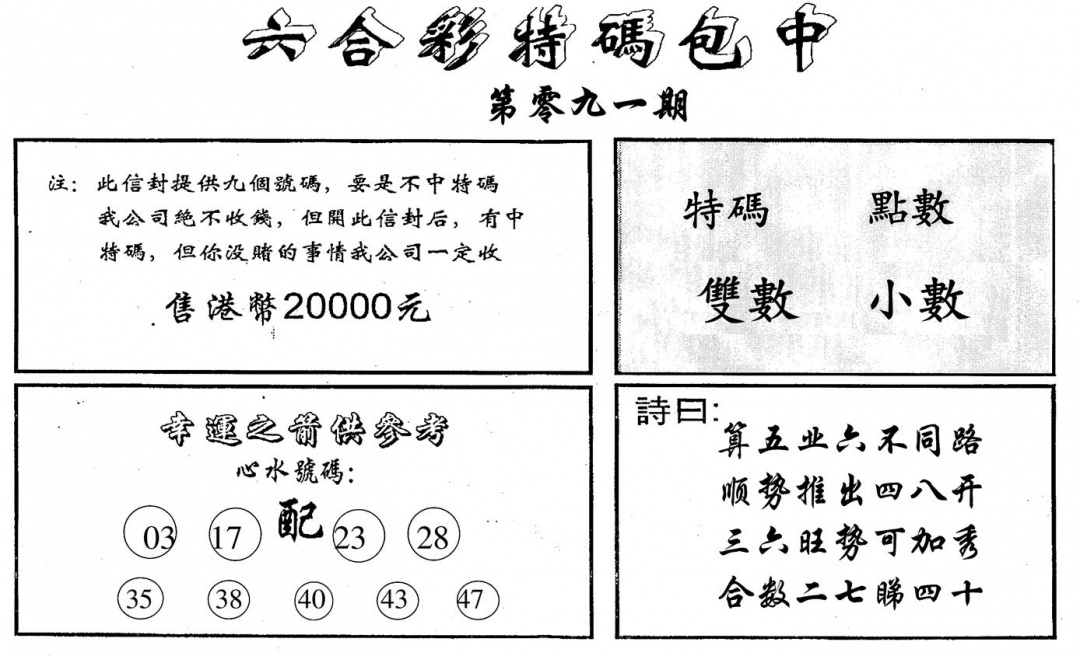 六合彩特碼包中
第零九一期
注：此信封提供九個號碼，要是不中特碼
我公司絕不收錢，但開此信封后，有中
特碼，但你没賭的事情我公司一定收
售港幣20000元
特碼 點數
雙數 小數
幸運之箭供參考
心水號碼：
03 17 配 23 28
35 38 40 43 47
詩曰：
算五业六不同路
顺势推出四八开
三六旺势可加秀
合数二七睇四十